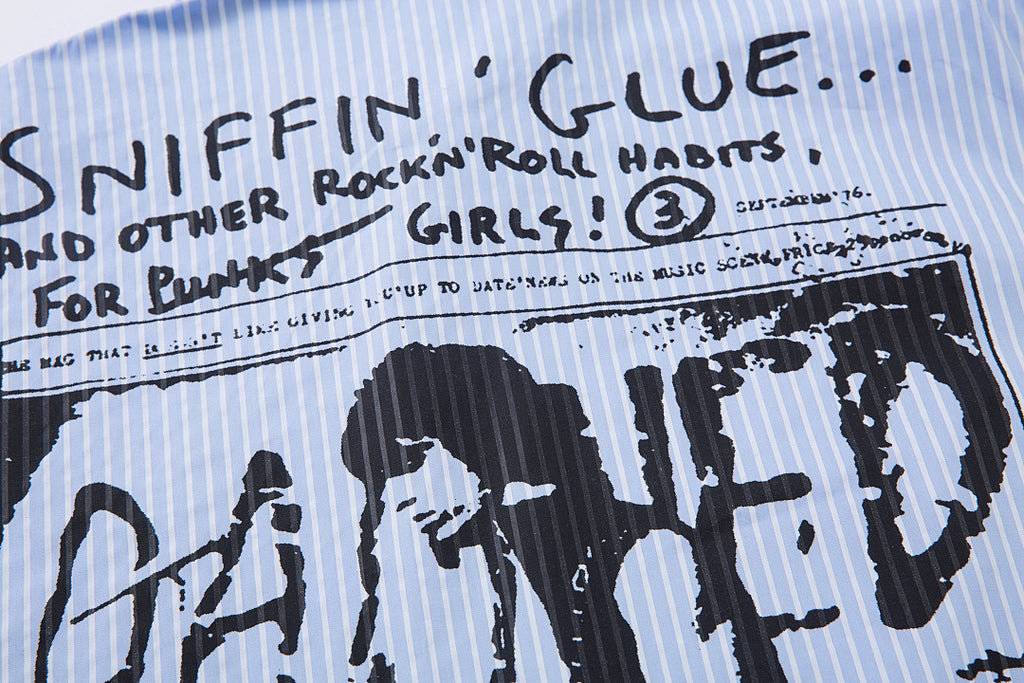 SNIFFIN' GLUE...
AND OTHER ROCK'N'ROLL HABITS,
FOR PUNKS GIRLS! 3
SEPTEMBER '76.
THE MAG THAT DOESN'T LIKE GIVING YOU 'UP TO DATE' NEWS ON THE MUSIC SCENE. PRICE